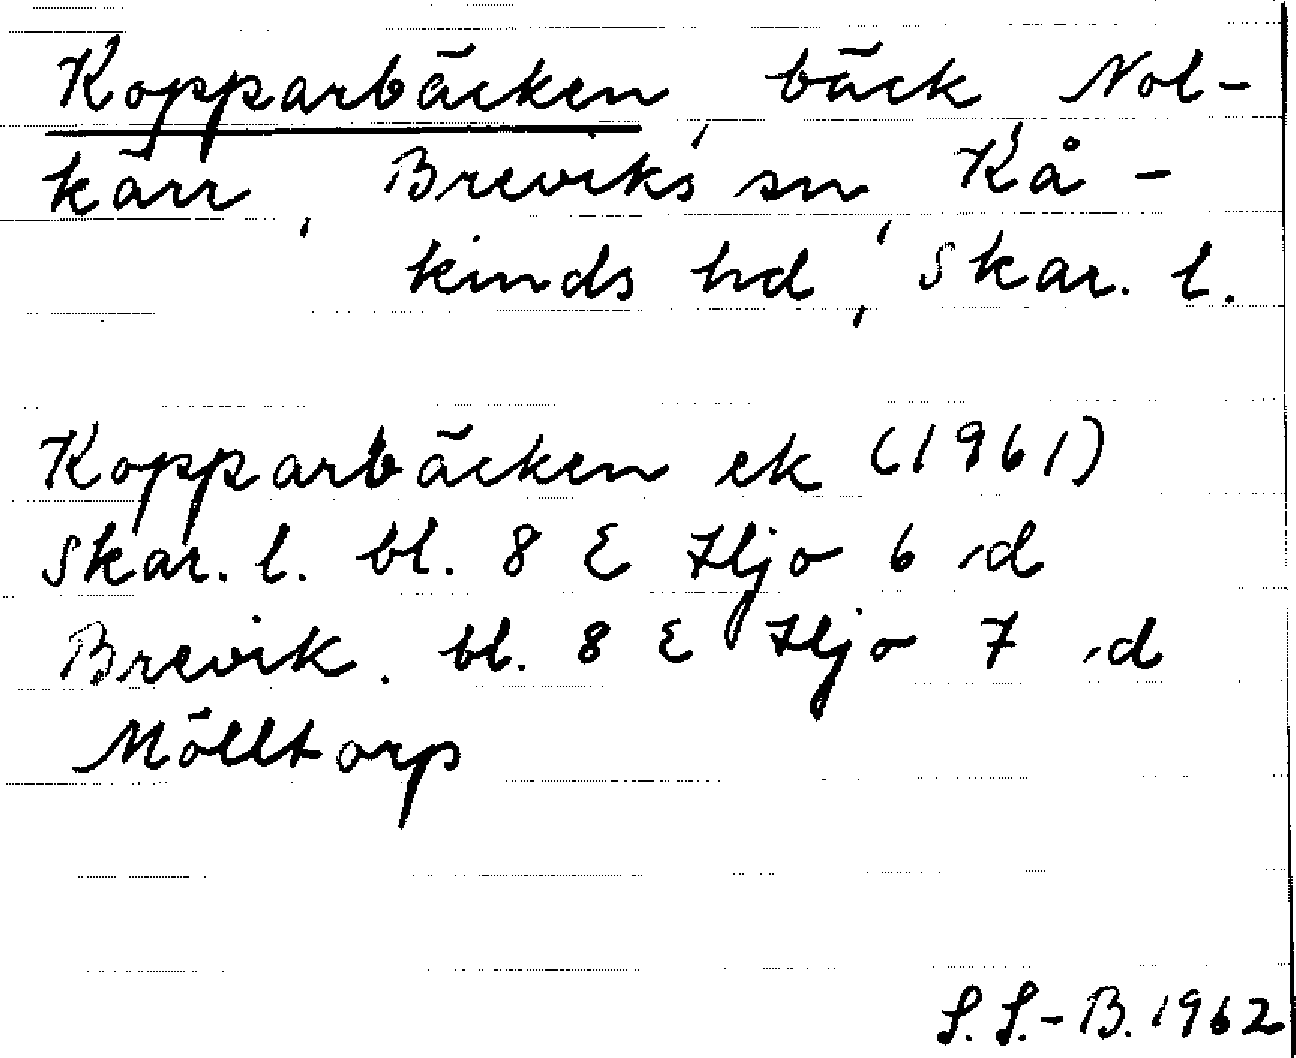 Kopparbäcken, bäck Nol-
kärr, Breviks sn, Kå-
kinds hd, Skar. l.
Kopparbäcken ek (1961)
Skar. l. bl. 8 E Hjo 6 d
Brevik. bl. 8 E Hjo 7 d
Mölltorp
S. S.-B. 1962